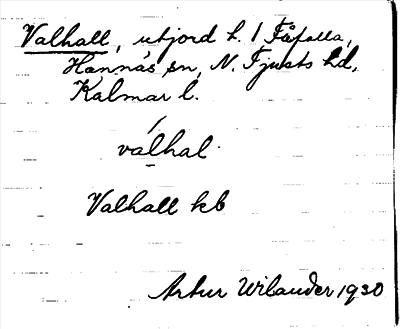 Valhall, utjord t. 1 Fåfalla,
Hannäs sn, N. Tjusts hd,
Kalmar l.
válhal
Valhall kb
Artur Wilander 1930